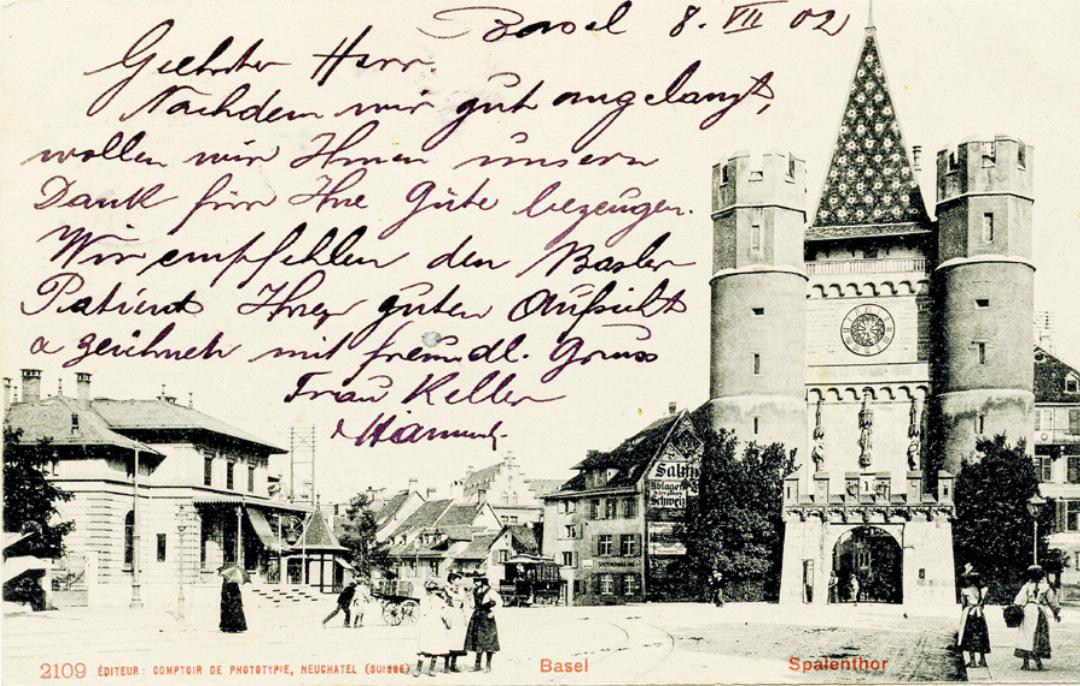 Basel 8. VII 02
Geehrter Herr.
Nachdem wir gut angelangt,
wollen wir Ihnen unsern
Dank für Ihre Güte bezeugen.
Wir empfehlen den Basler
Patient Ihrer guten Aufsicht
& zeichnen mit freundl. Gruss
Frau Keller
Ablagen
Schweiz
2109 ÉDITEUR: COMPTOIR DE PHOTOTYPIE, NEUCHATEL (SUISSE)
Basel
Spalenthor